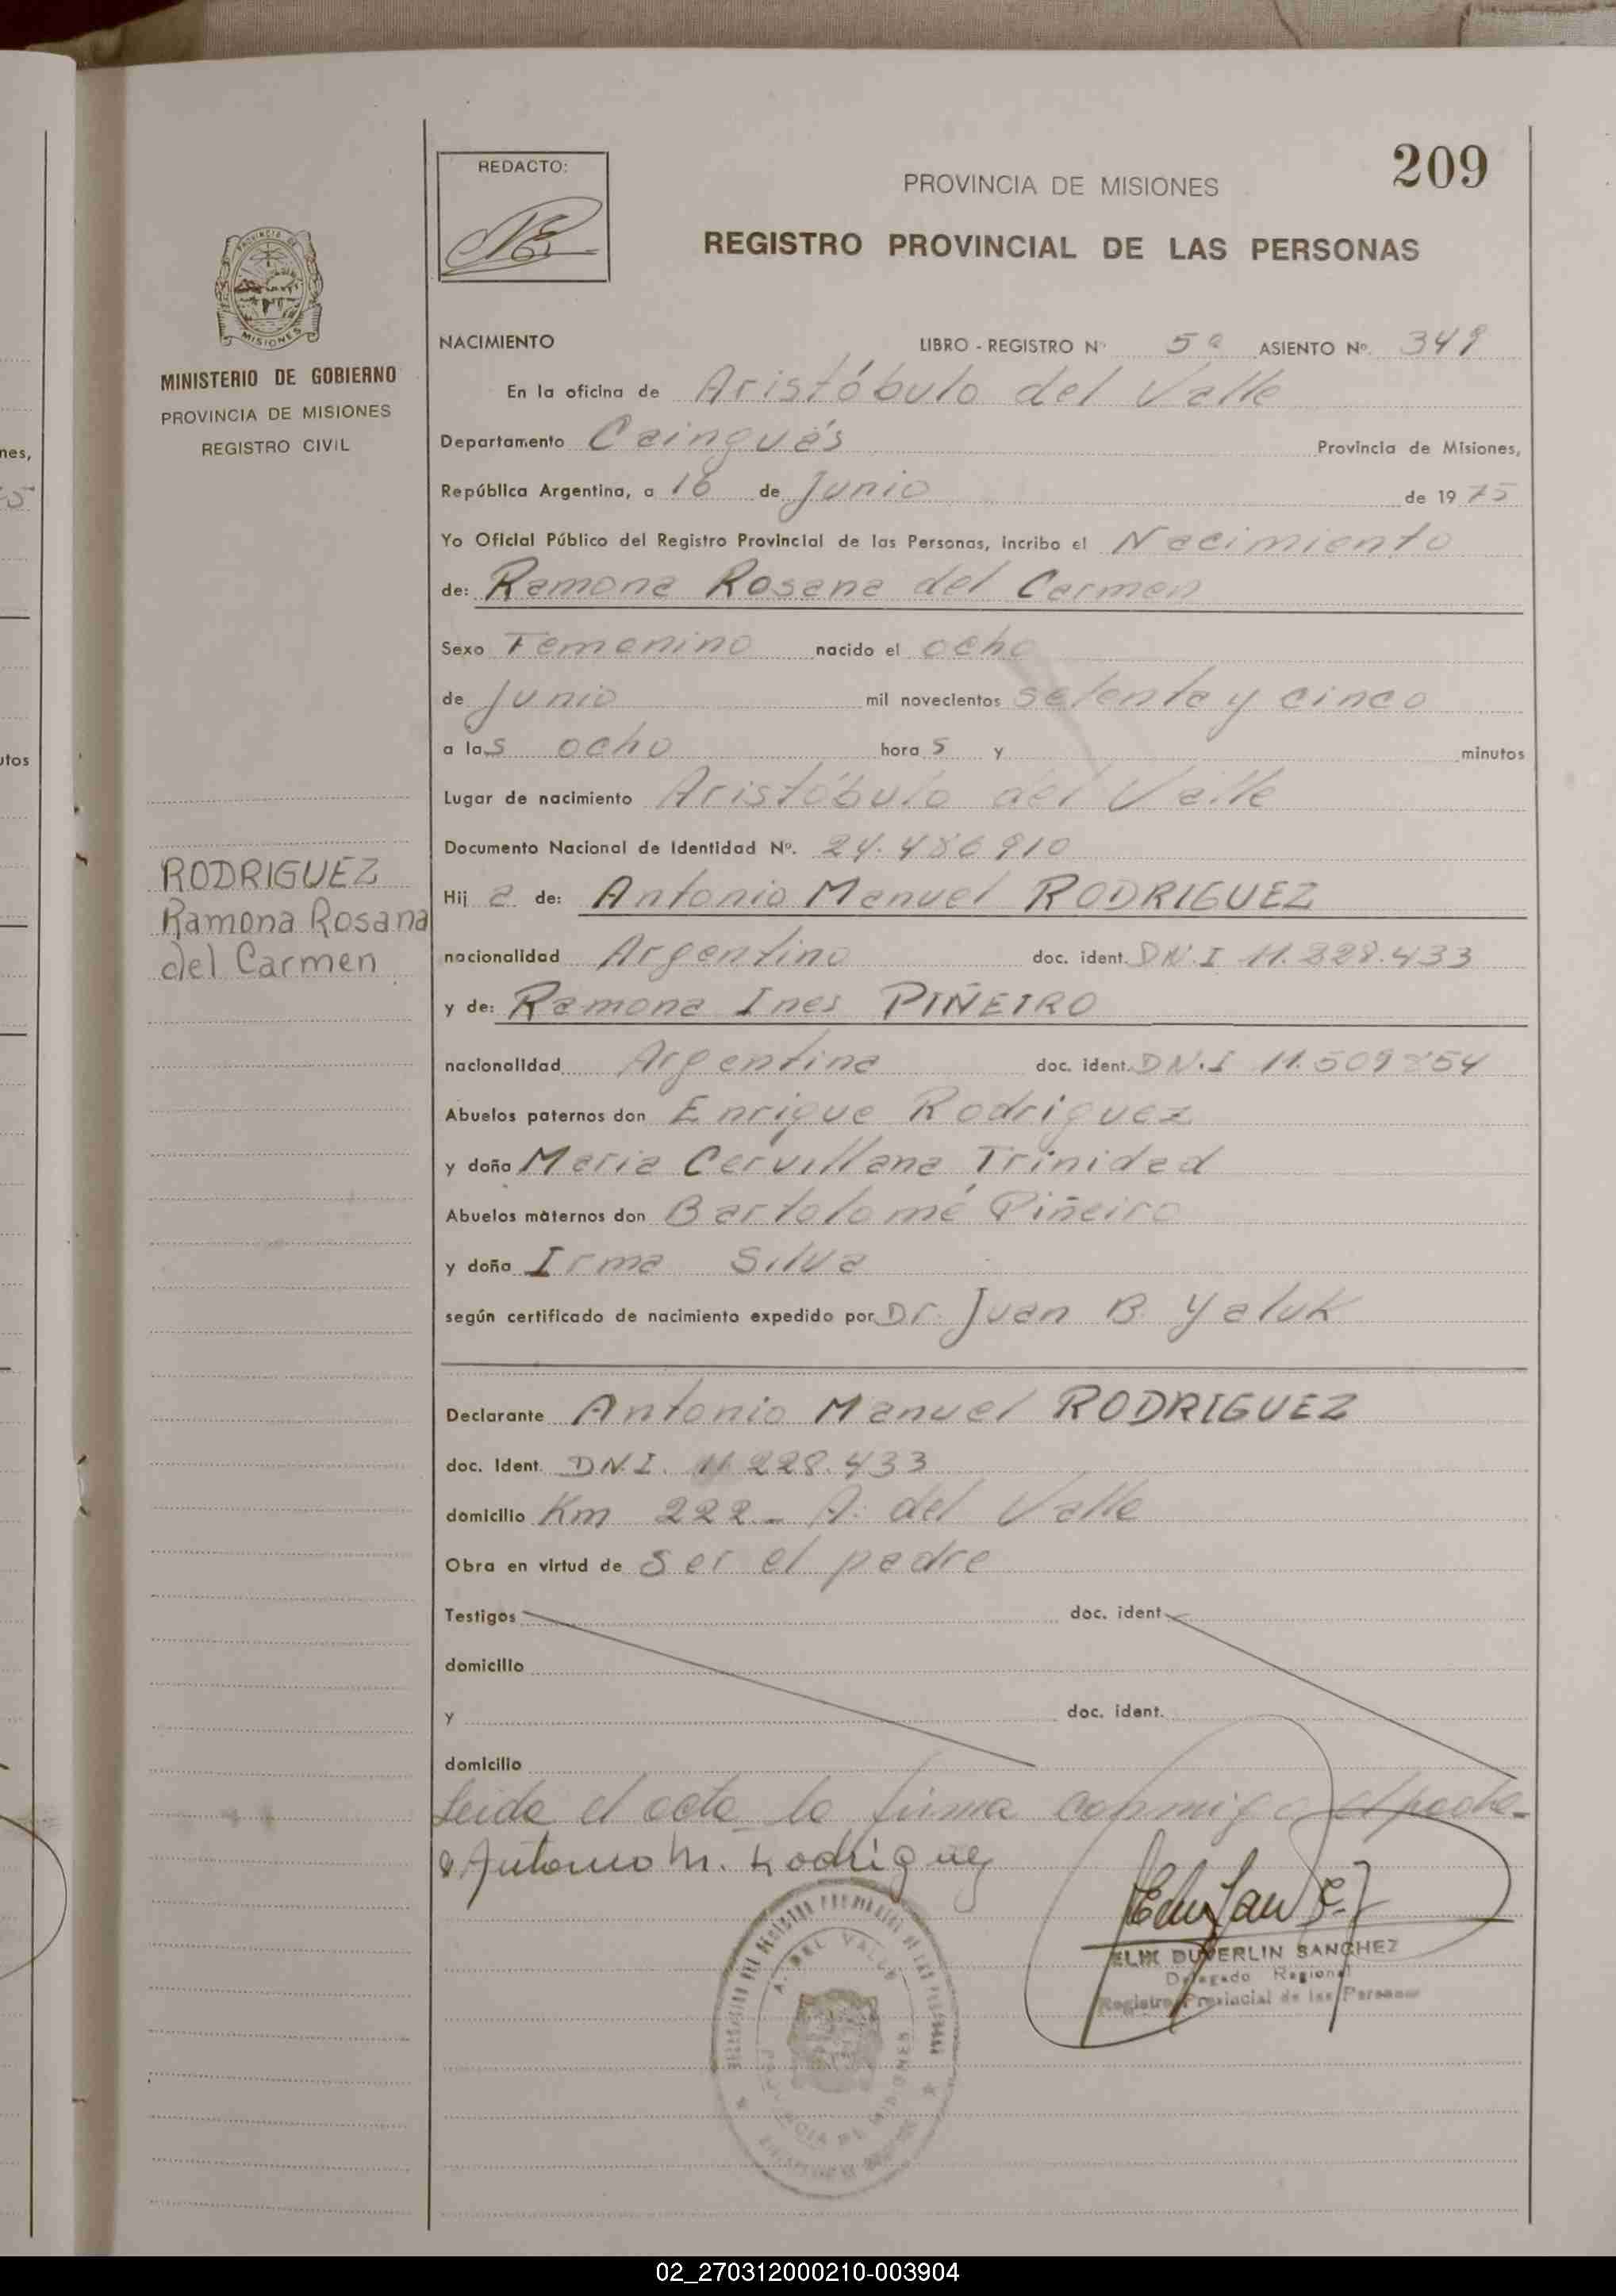 209
REDACTO:
PROVINCIA DE MISIONES
REGISTRO PROVINCIAL DE LAS PERSONAS
MISIONES
MINISTERIO DE GOBIERNO
PROVINCIA DE MISIONES
REGISTRO CIVIL
nes,
utos
NACIMIENTO LIBRO - REGISTRO Nº 5º ASIENTO Nº. 349
En la oficina de Aristóbulo del Valle
Departamento Cainguás Provincia de Misiones,
República Argentina, a 16 de Junio de 1975
Yo Oficial Público del Registro Provincial de las Personas, incribo el Nacimiento
de: Ramona Rosana del Carmen
Sexo Femenino nacido el ocho
de Junio mil novecientos setenta y cinco
a las ocho horas y minutos
Lugar de nacimiento Aristóbulo del Valle
Documento Nacional de Identidad Nº. 24.486910
RODRIGUEZ
Ramona Rosana
del Carmen
Hija de: Antonio Manuel RODRIGUEZ
nacionalidad Argentino doc. ident. DN.I 11.228.433
y de: Ramona Ines PIÑEIRO
nacionalidad Argentina doc. ident. DN.I 11.509854
Abuelos paternos don Enrique Rodriguez
y doña Maria Cervillana Trinidad
Abuelos maternos don Bartolomé Piñeiro
y doña Irma Silva
según certificado de nacimiento expedido por Dr. Juan B. Yaluk
Declarante Antonio Manuel RODRIGUEZ
doc. Ident. DN.I. 11.228.433
domicilio Km 222- A. del Valle
Obra en virtud de ser el padre
Testigos doc. ident.
domicilio
y doc. ident.
domicilio
Leida el acta la firma conmigo el padre-
Antonio M. Rodriguez
DUVERLIN SANCHEZ
Delegado Regional
Registro Provincial de las Personas
A. DEL VALLE
02_270312000210-003904